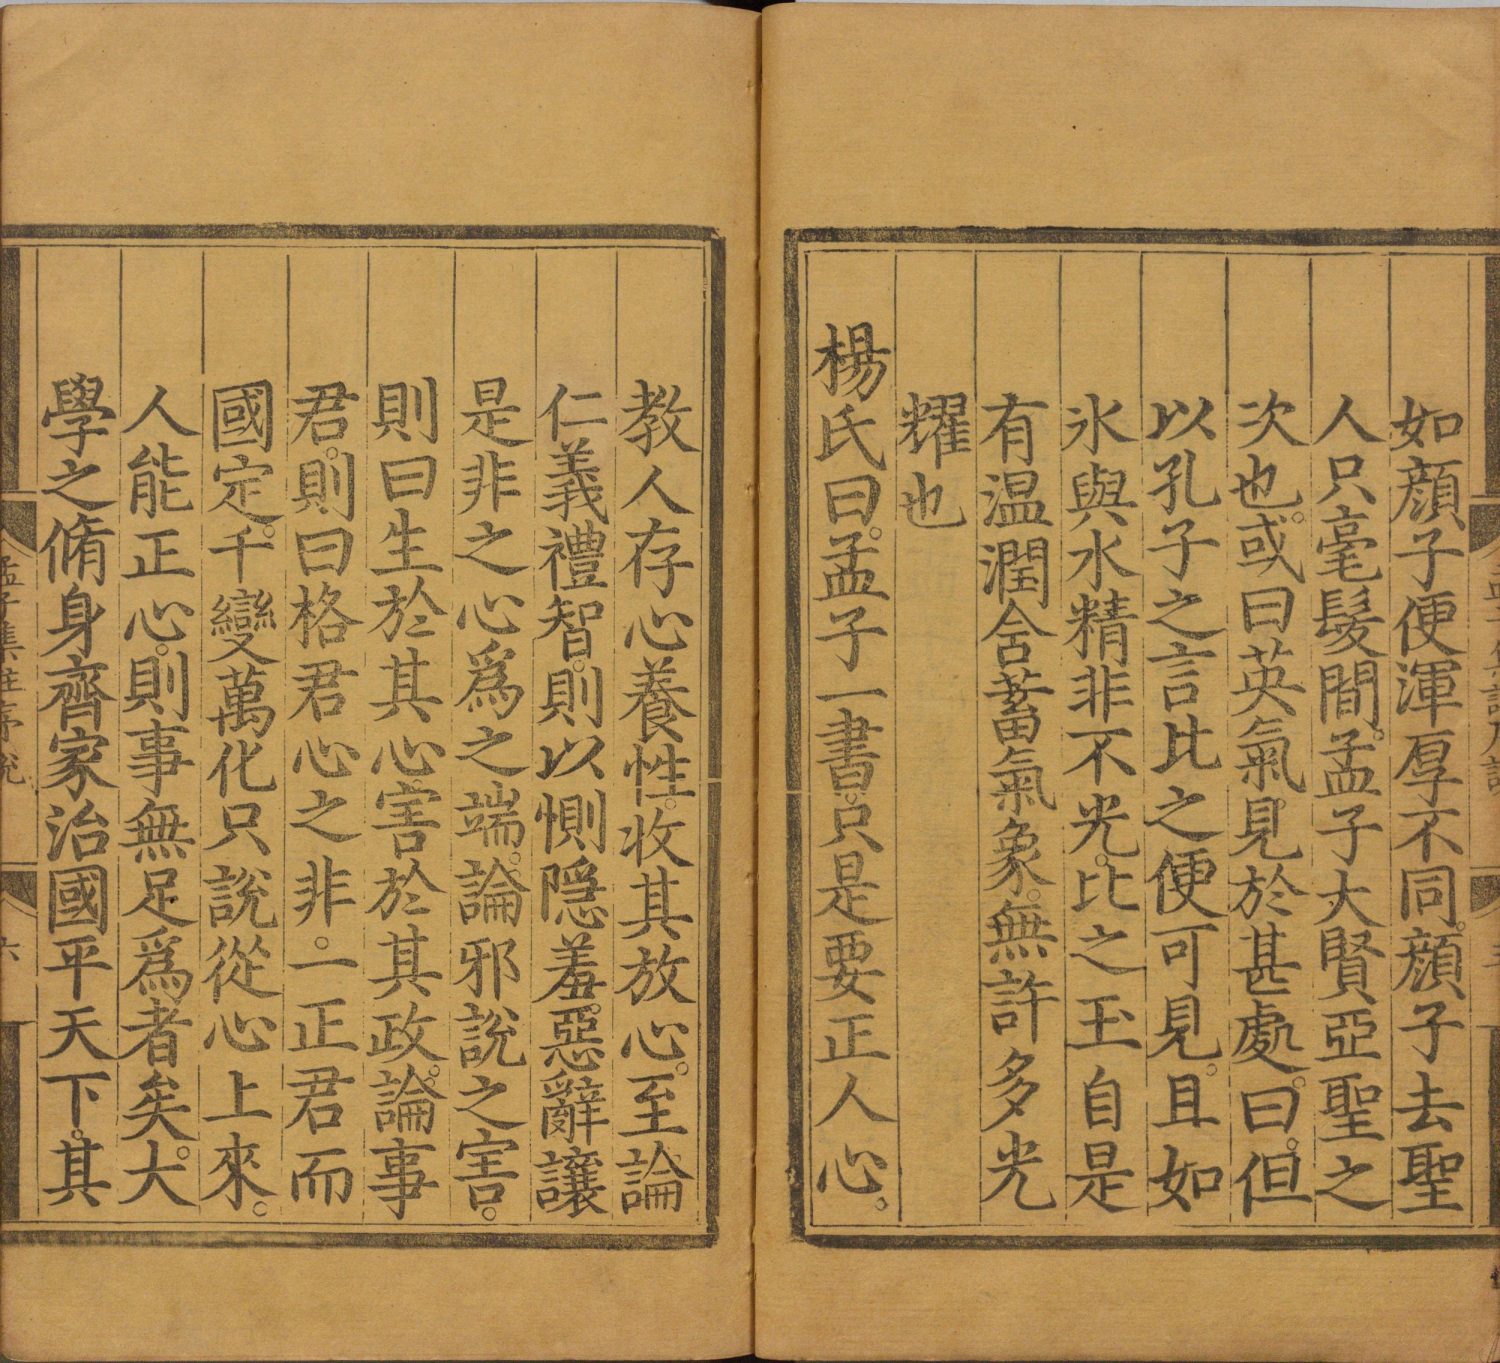 如顔子便渾厚不同。顔子去聖
人只毫髮間。孟子大賢亞聖之
次也。或曰英氣見於甚處。曰。但
以孔子之言比之便可見。且如
氷與水精非不光。比之玉自是
有温潤含蓄氣象。無許多光
耀也
楊氏曰。孟子一書。只是要正人心。
教人存心養性。收其放心。至論
仁義禮智。則以惻隠羞惡辭讓
是非之心爲之端。論邪說之害。
則曰生於其心。害於其政。論事
君。則曰格君心之非。一正君而
國定。千變萬化只說從心上來。
人能正心。則事無足爲者矣。大
學之脩身齊家治國平天下。其
孟子集註序說
六